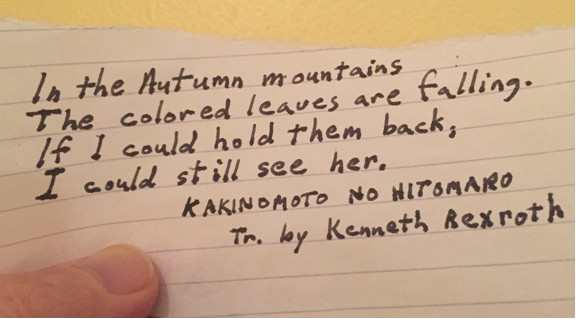 In the Autumn mountains
The colored leaves are falling.
If I could hold them back,
I could still see her.
KAKINOMOTO NO HITOMARO
Tr. by Kenneth Rexroth